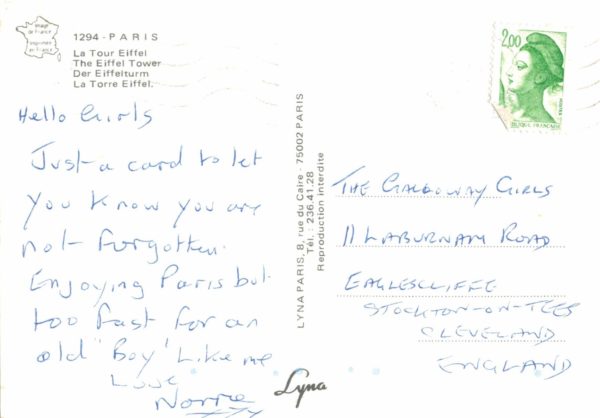 Image
de France
Imprimée
en France
1294 - PARIS
La Tour Eiffel
The Eiffel Tower
Der Eiffelturm
La Torre Eiffel.
Hello Girls
Just a card to let
you know you are
not forgotten.
Enjoying Paris but
too fast for an
old "Boy" like me
Love
LYNA PARIS, 8, rue du Caire - 75002 PARIS
Tél. : 236.41.28
Reproduction interdite
Lyna
2,00
POSTES
RÉPUBLIQUE FRANÇAISE
THE GALLOWAY GIRLS
11 LABURNAM ROAD
EAGLESCLIFFE
STOCKTON-ON-TEES
CLEVELAND
ENGLAND